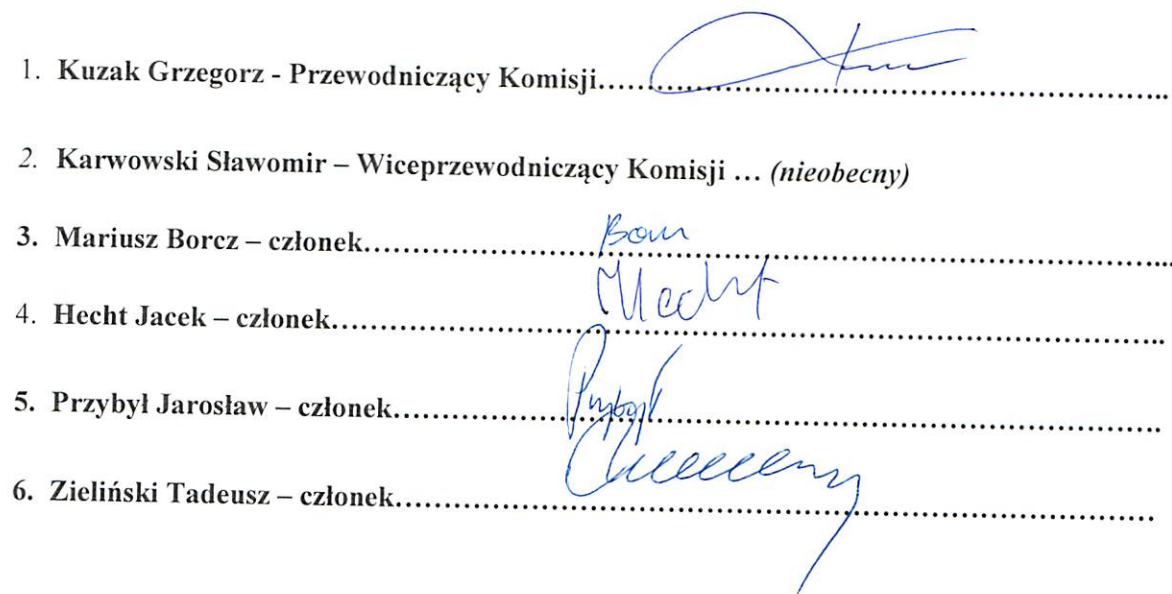 1. Kuzak Grzegorz - Przewodniczący Komisji……………………………………………………..
2. Karwowski Sławomir – Wiceprzewodniczący Komisji … (nieobecny)
3. Mariusz Borcz – członek……………………………………………………………………...
Hecht
4. Hecht Jacek – członek………………………………………………………………………..
5. Przybył Jarosław – członek…………………………………………………………………. Przybył
6. Zieliński Tadeusz – członek…………………………………………………………………